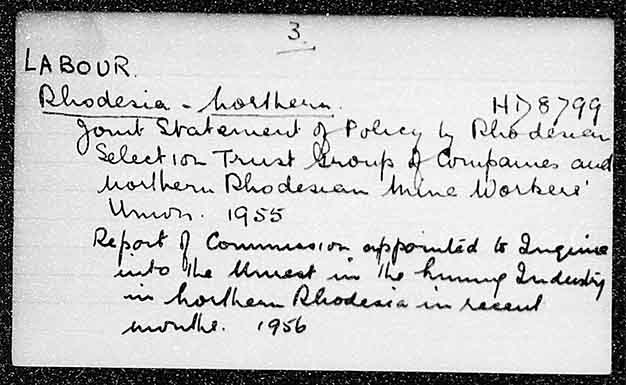 3.
LABOUR.
Rhodesia - Northern.
HD 8799
Joint Statement of Policy by Rhodesian
Selection Trust Group of Companies and
Northern Rhodesian Mine Workers'
Union. 1955
Report of Commission appointed to Inquire
into the Unrest in the Mining Industry
in Northern Rhodesia in recent
months. 1956